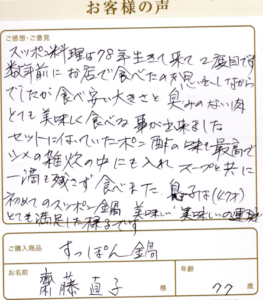 お客様の声
ご感想・ご意見
スッポン料理は78年生きて来て2度目です
数年前にお店で食べたのを思い出しながら
でしたが食べ安い大きさと臭みのない肉
とても美味しく食べる事が出来ました
セットに付いていたポン酢の味も最高で
シメの雑炊の中にも入れスープと共に
一滴も残さず食べました 息子は(47才)
初めてのスッポン鍋 美味しい 美味しいの連発
とても満足した様子です
ご購入商品
すっぽん鍋
お名前
齋藤直子
様
年齢
77
歳